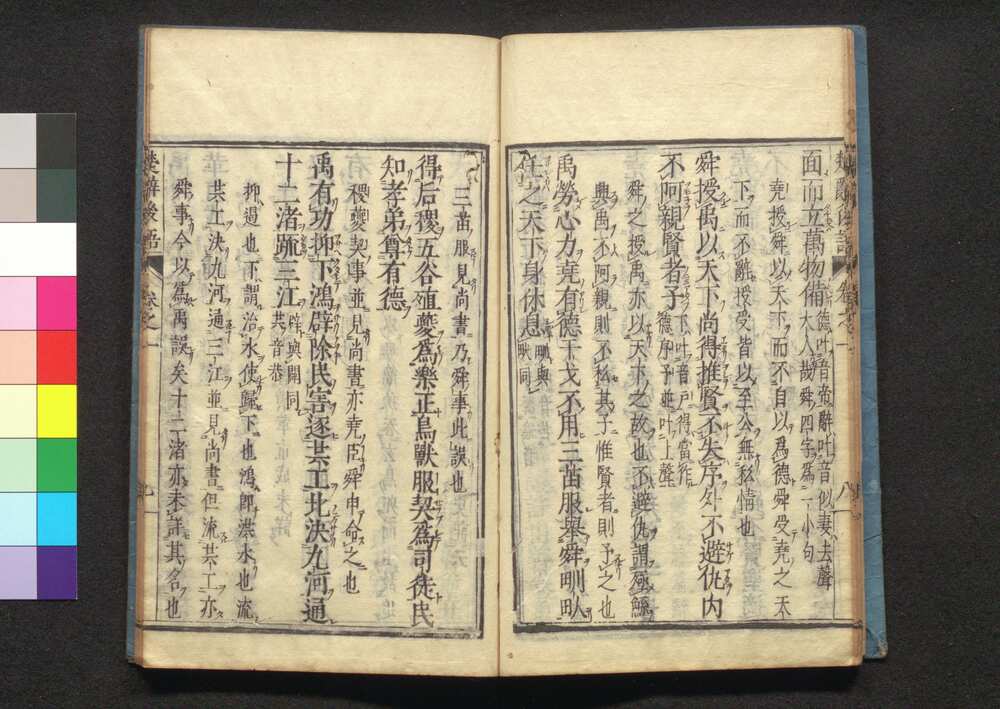 楚辭後語 卷之一 八
面而立萬物備德叶音帝辭叶音似妻去聲
大人哉舜四字爲一小句
堯授舜以天下而不自以爲德舜受堯之天
下而不辭授受皆以至公無私情也
舜授禹以天下尚得推賢不失序外不避仇內
不阿親賢者予下叶音戶得當作
德序予並叶上聲
舜之授禹亦以天下之故也不避仇謂殛鯀
興禹不阿親則不私其子惟賢者則予之也
禹勞心力堯有德干戈不用三苗服舉舜甽畝
任之天下身休息甽與
畎同
三苗服見尚書乃舜事此誤也
得后稷五谷殖夔爲樂正鳥獸服契爲司徒民
知孝弟尊有德
稷夔契事並見尚書亦堯臣舜申命之也
禹有功抑下鴻辟除民害逐共工北決九河通
十二渚䟽三江辟與闢同
共音恭
抑遏也下謂治水使歸下也鴻即洪水也流
共工決九河通三江並見尚書但流共工亦
舜事今以爲禹誤矣十二渚亦未詳其名也
楚辭後語 卷之一 九